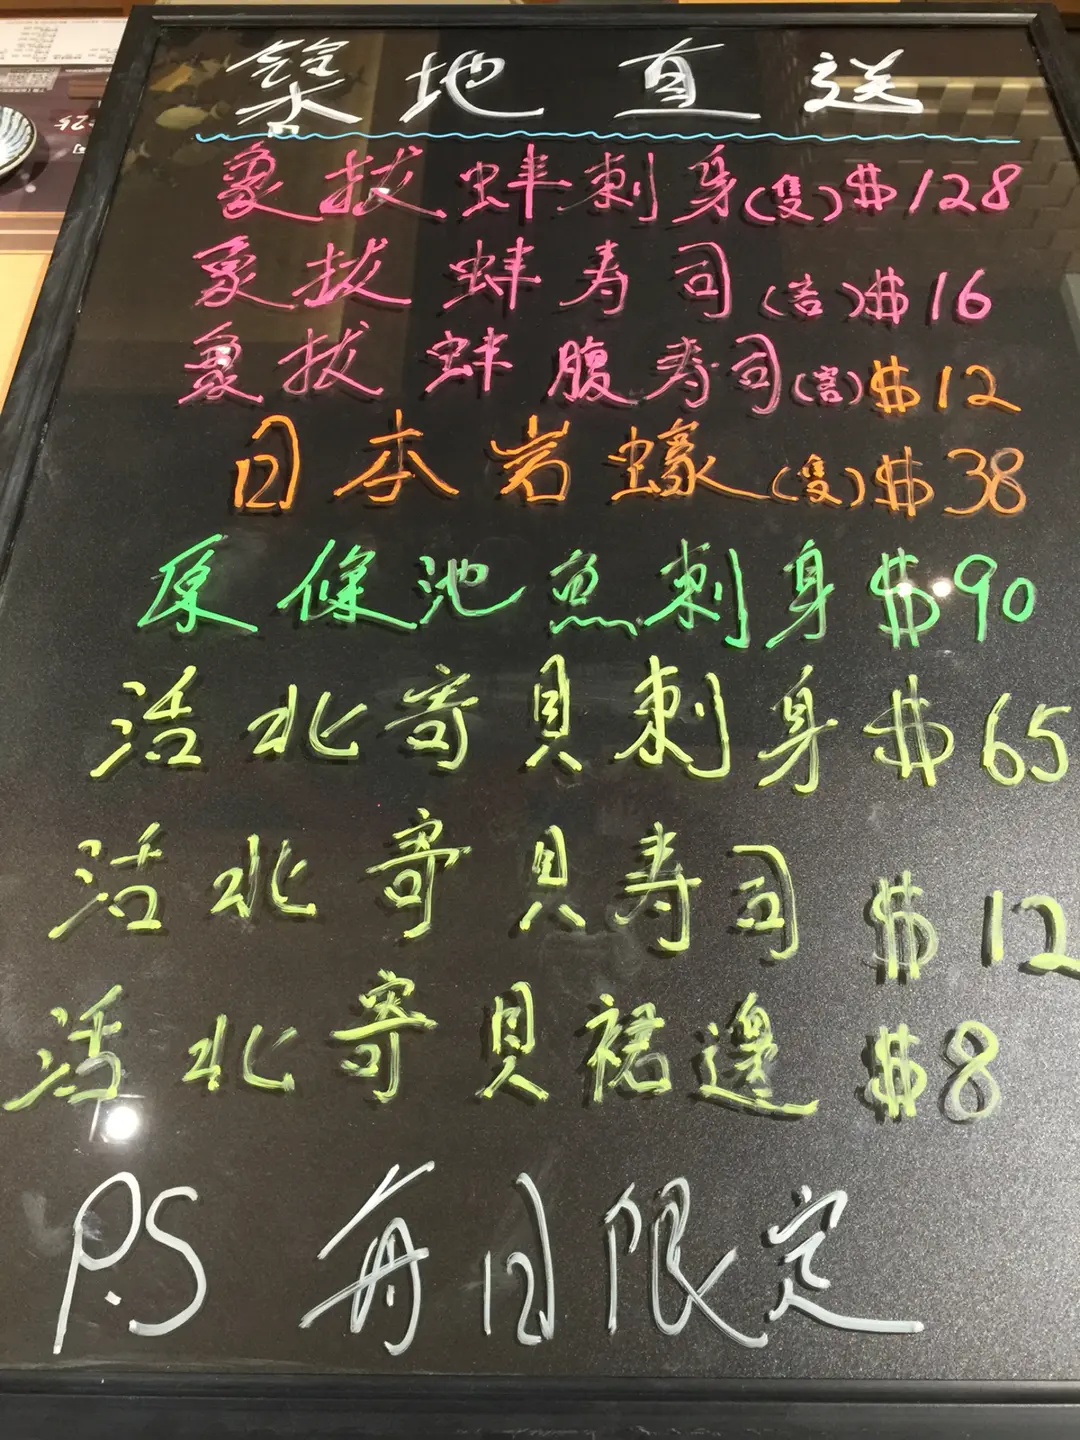 築地直送
象拔蚌刺身(隻)$128
象拔蚌寿司(吉)$16
象拔蚌腹寿司(吉)$12
日本岩蠔(隻)$38
原條池魚刺身$90
活北寄貝刺身$65
活北寄貝寿司$12
活北寄貝裙邊$8
P.S每日限定